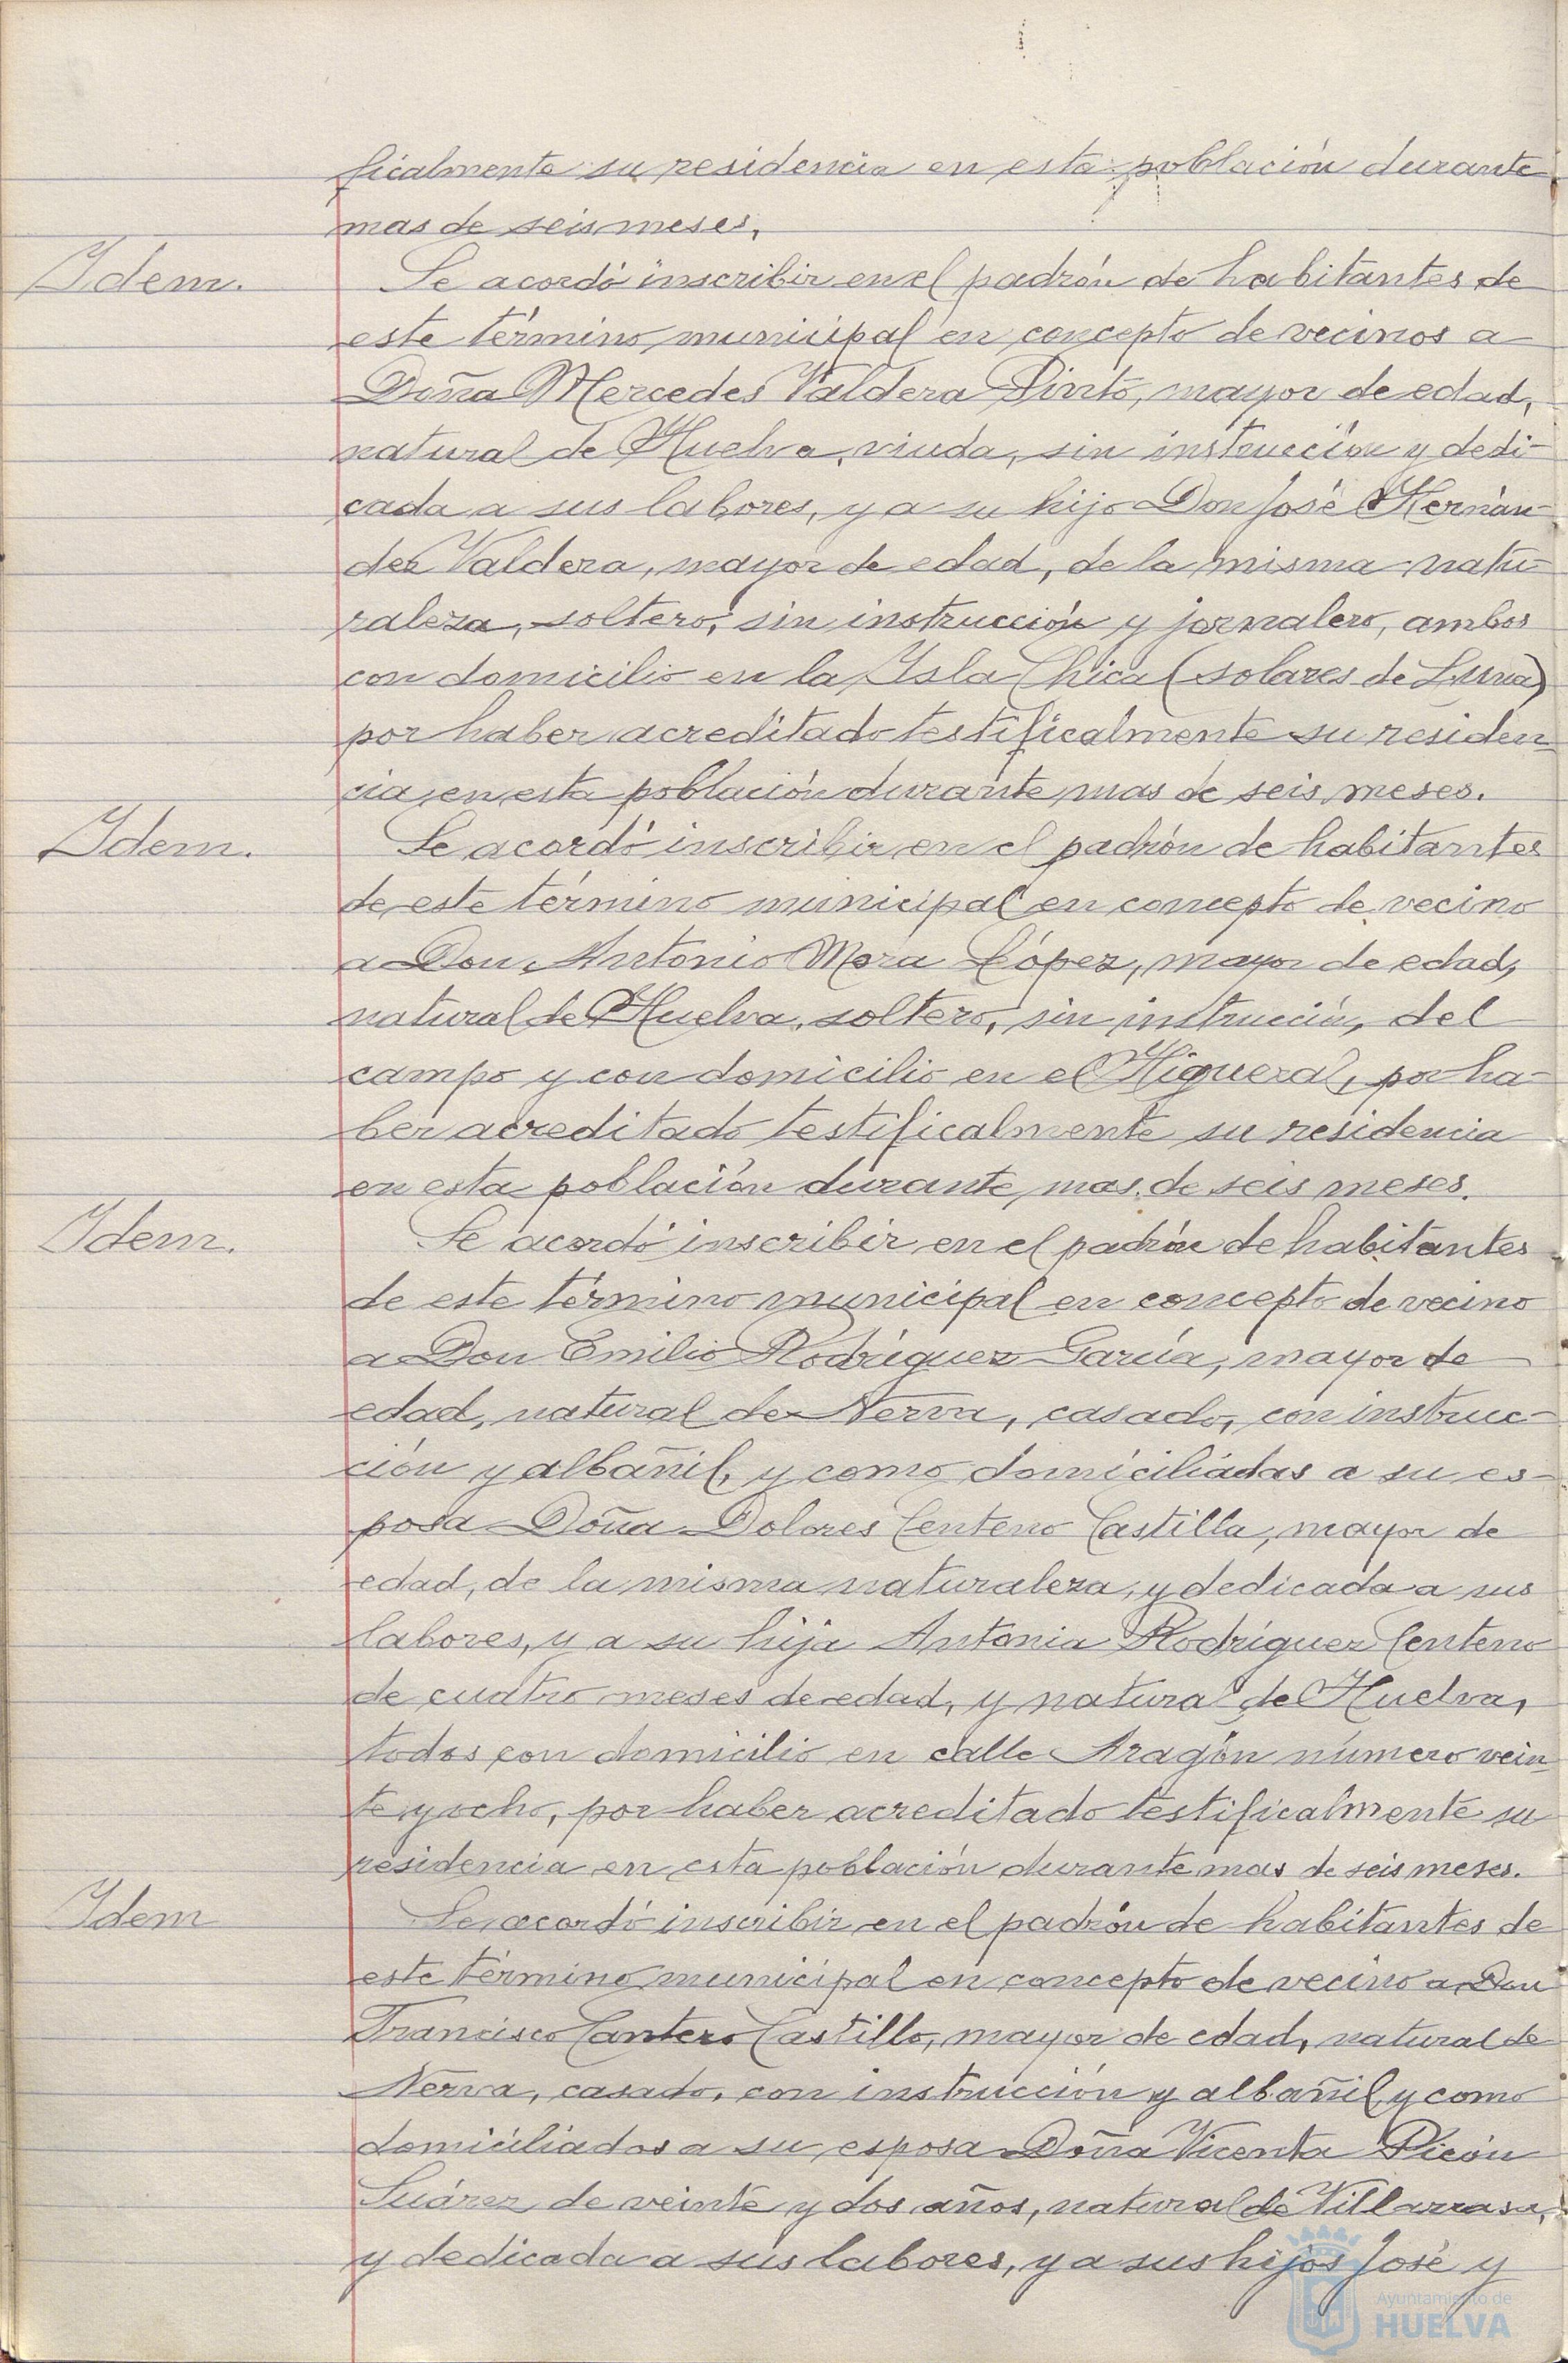 ficalmente su residencia en esta población durante
mas de seis meses.
Idem.
Se acordó inscribir en el padrón de habitantes de
este término municipal en concepto de vecinos a
Doña Mercedes Valdera Pinto, mayor de edad,
natural de Huelva, viuda, sin instrucción y dedi-
cada a sus labores, y a su hijo Don José Hernán-
dez Valdera, mayor de edad, de la misma natu-
raleza, soltero, sin instrucción y jornalero, ambos
con domicilio en la Isla Chica (solares de Luna)
por haber acreditado testificalmente su residen-
cia en esta población durante mas de seis meses.
Idem.
Se acordó inscribir en el padrón de habitantes
de este término municipal en concepto de vecino
a Don Antonio Mora López, mayor de edad,
natural de Huelva, soltero, sin instrucción, del
campo y con domicilio en el Higueral, por ha-
ber acreditado testificalmente su residencia
en esta población durante mas de seis meses.
Idem.
Se acordó inscribir en el padrón de habitantes
de este término municipal en concepto de vecino
a Don Emilio Rodríguez García, mayor de
edad, natural de Nerva, casado, con instruc-
ción y albañil, y como domiciliadas a su es-
posa Doña Dolores Centeno Castilla, mayor de
edad, de la misma naturaleza, y dedicada a sus
labores, y a su hija Antonia Rodríguez Centeno
de cuatro meses de edad, y natural de Huelva,
todos con domicilio en calle Aragón número vein-
te y ocho, por haber acreditado testificalmente su
residencia en esta población durante mas de seis meses.
Idem
Se acordó inscribir en el padrón de habitantes de
este término municipal en concepto de vecino a Don
Francisco Cantero Castillo, mayor de edad, natural de
Nerva, casado, con instrucción y albañil, y como
domiciliados a su esposa Doña Vicenta Picón
Suárez de veinte y dos años, natural de Villarrasa,
y dedicada a sus labores, y a sus hijos José y
Ayuntamiento de
HUELVA